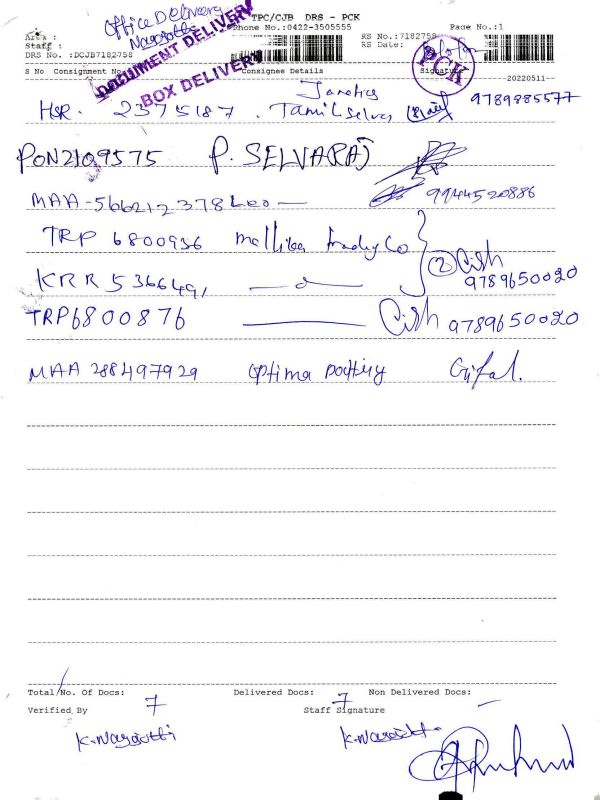 Office Delivery
TPC/CJB DRS - PCK
Phone No.:0422-3505555
Page No.:1
RS No.:7182758
RS Date:
Area :
Staff :
DRS No. :DCJB7182758
DOCUMENT DELIVERY
BOX DELIVERY
PCK
S No Consignment No Consignee Details Signature
20220511
HSR. 2375187 . Tamilselvas 9789885577
PON2109575 P. SELVARAJ
MAA-566212378 Leo — 9944520886
TRP 6800936 Mallika trading Co
② Cish
KRR 5366491 9789650020
TRP6800876 Cish 9789650020
MAA 288497929
Total No. Of Docs: 7 Delivered Docs: 7 Non Delivered Docs: —
Verified By Staff Signature